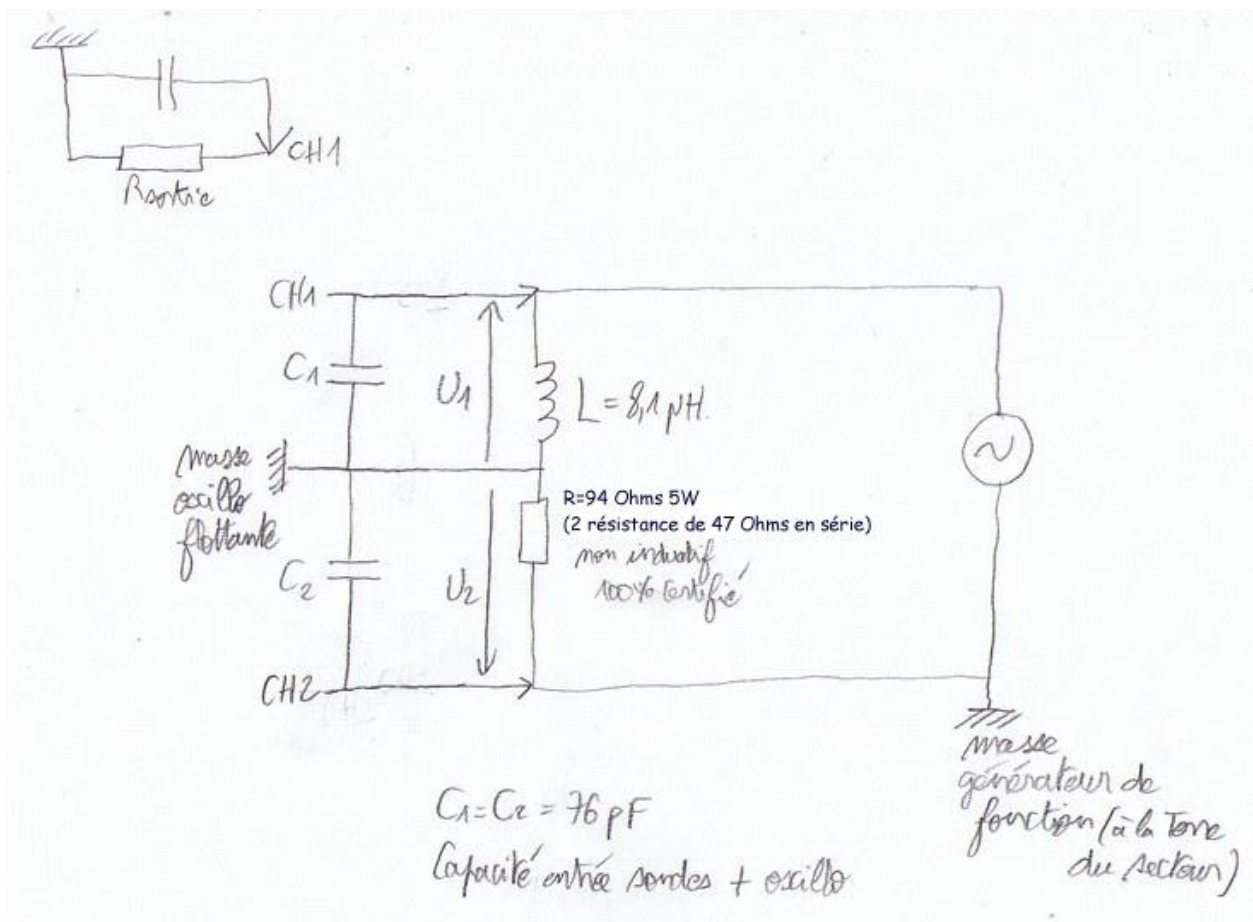 CH1
Rsortie
CH1
C1
U1
L = 8,1 µH.
masse
oscillo
flottante
R=94 Ohms 5W
(2 résistance de 47 Ohms en série)
non inductif
100% certifié
C2
U2
CH2
masse
générateur de
fonction (à la Terre
du secteur)
C1=C2 = 76 pF
Capacité entrée sondes + oscillo